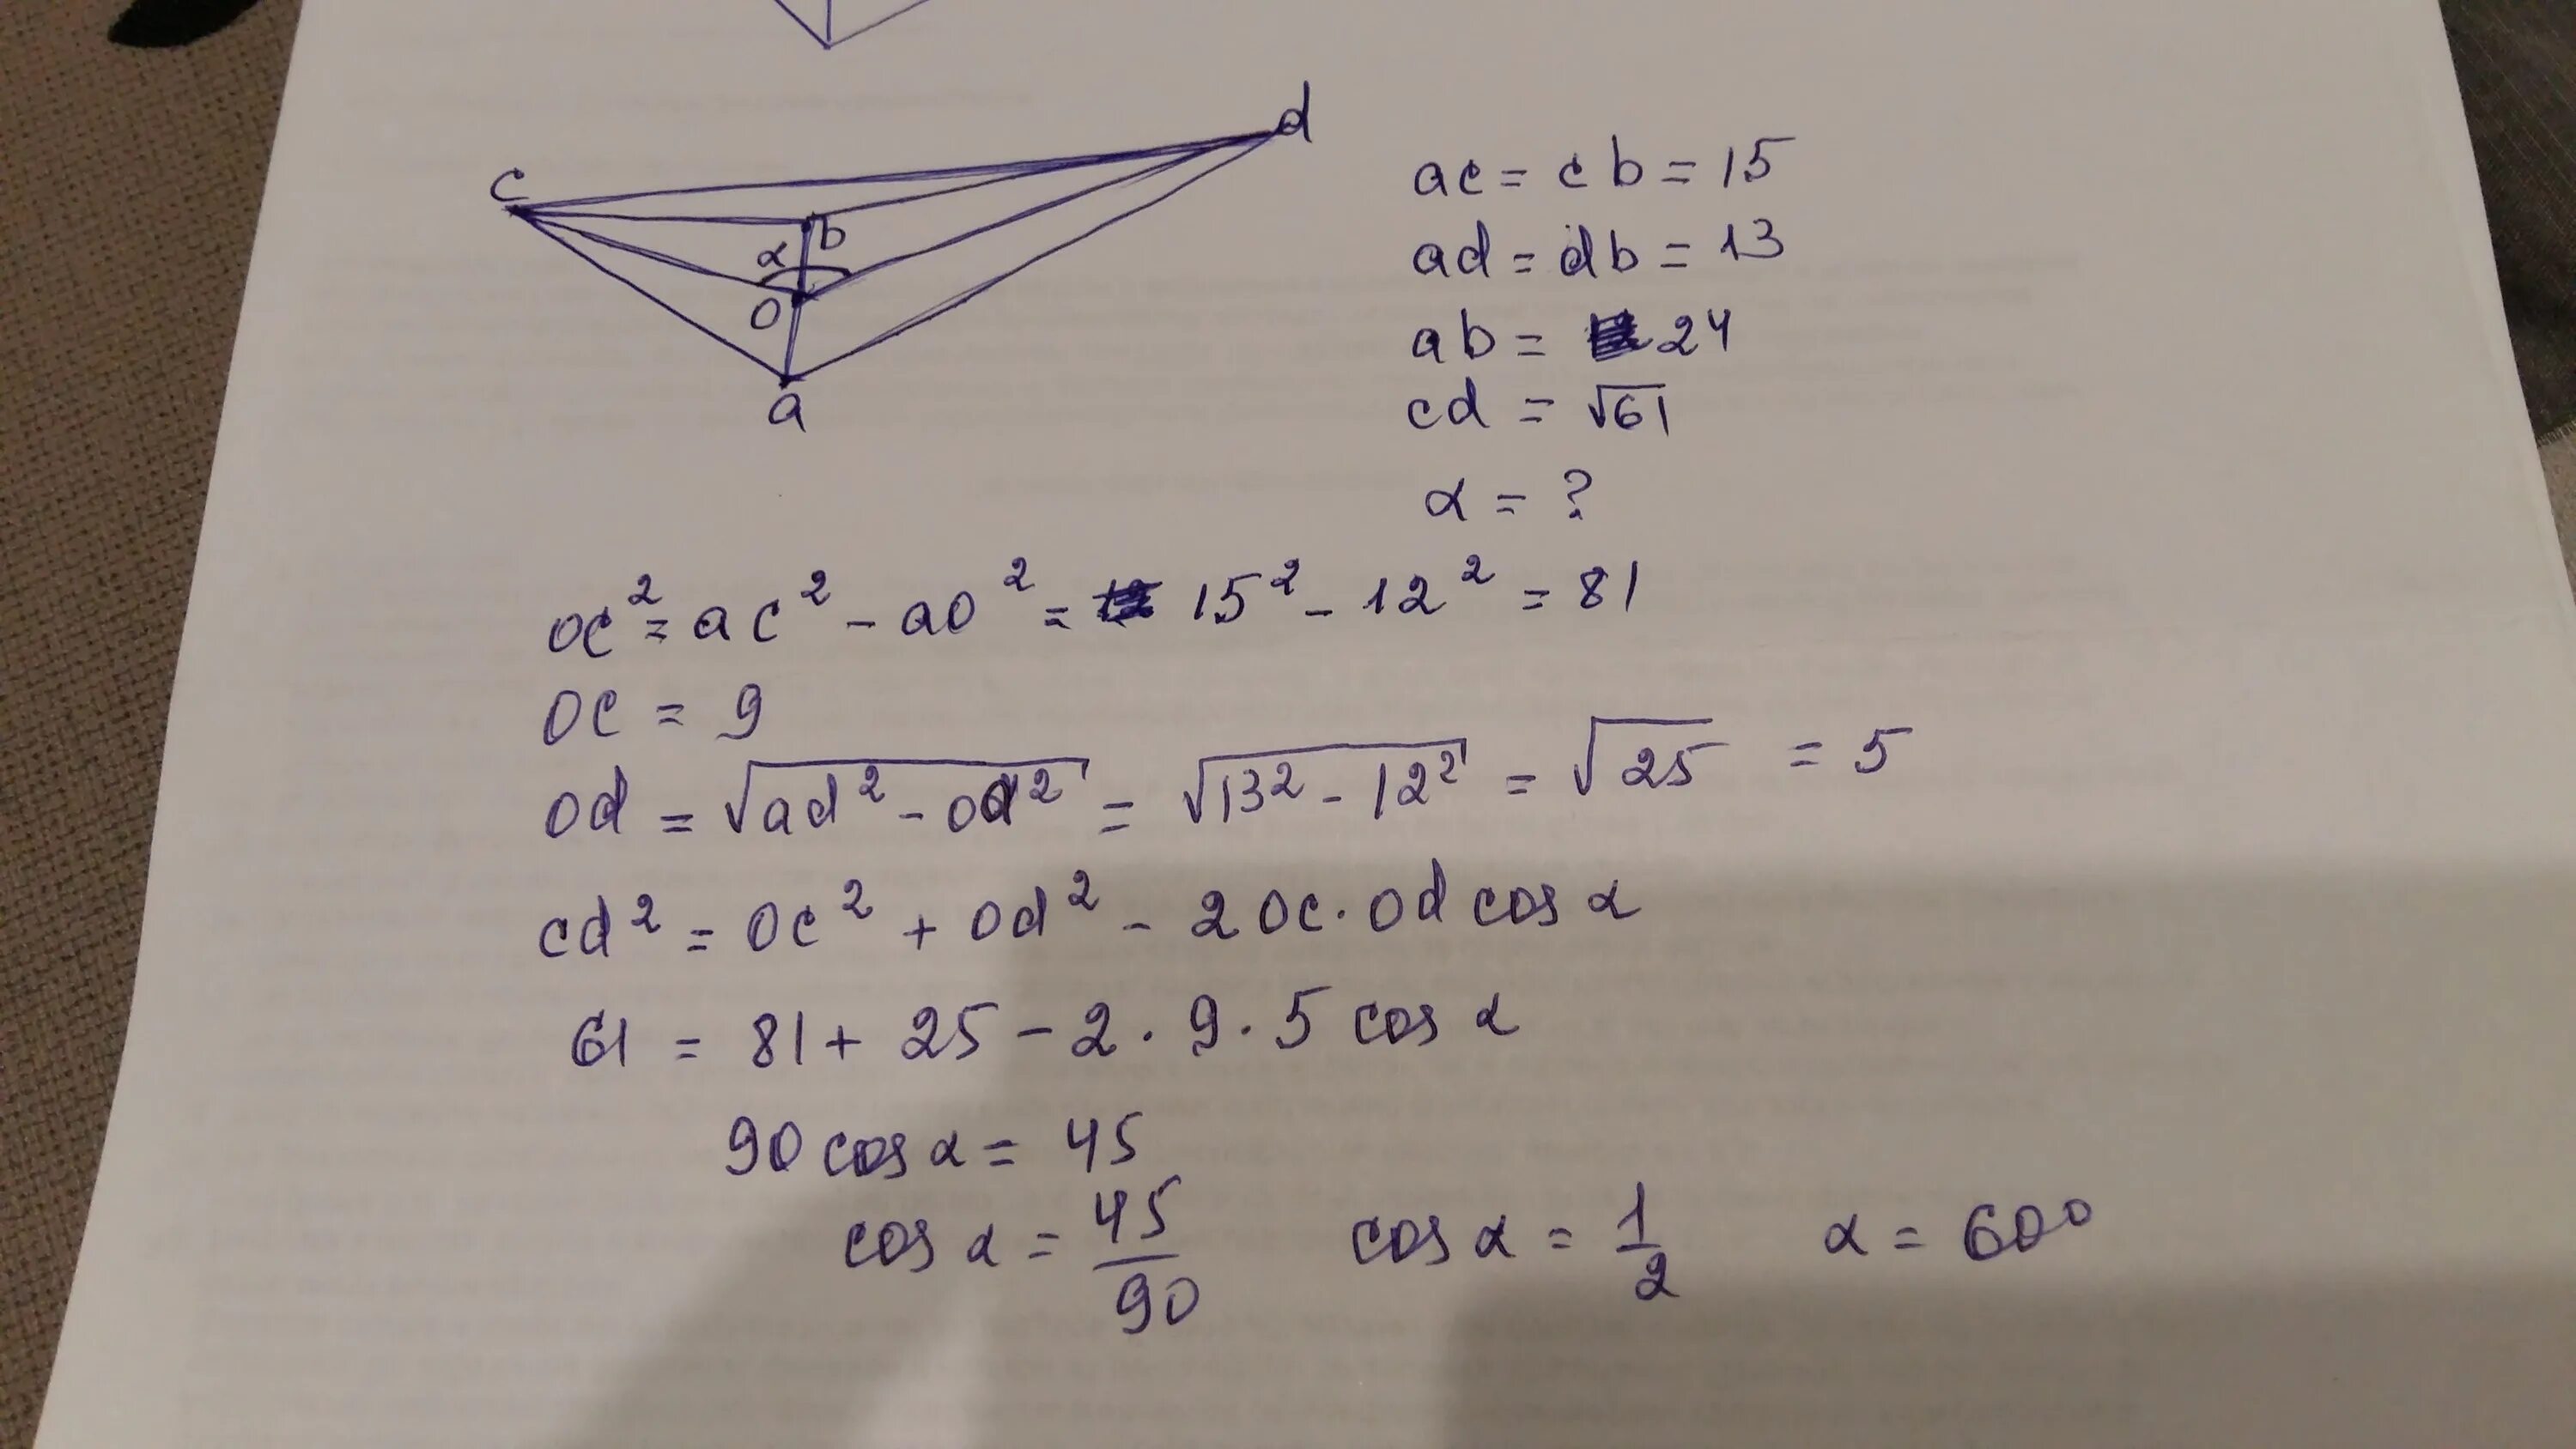 d
c
b
α
o
a
ac = cb = 15
ad = db = 13
ab = 24
cd = √61
α = ?
oc² = ac² - ao² = 15² - 12² = 81
oc = 9
od = √ad² - oa² = √13² - 12² = √25 = 5
cd² = oc² + od² - 2 oc · od cos α
61 = 81 + 25 - 2 · 9 · 5 cos α
90 cos α = 45
cos α = 45/90 cos α = 1/2 α = 60°